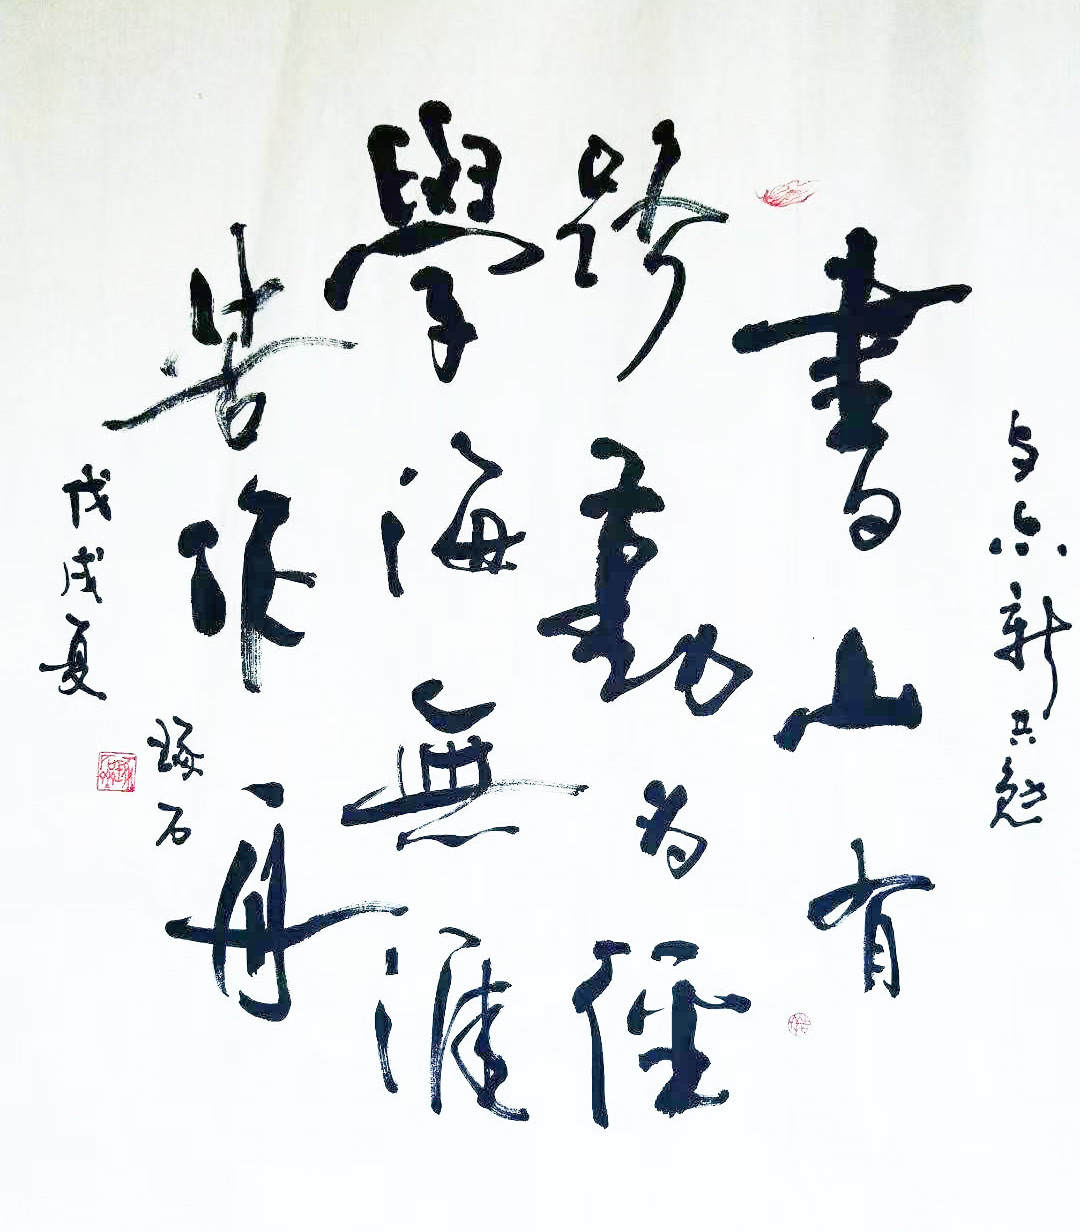 与亦新共勉
書山有
路勤为徑
學海無涯
苦作舟
戊戌夏
琢石